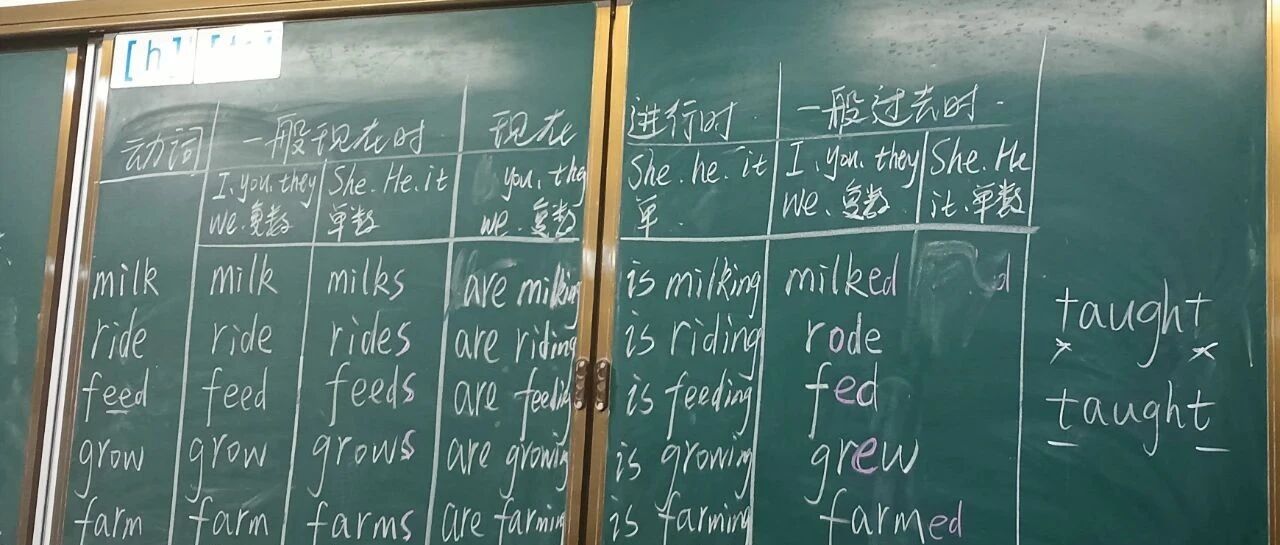 [h]
动词 一般现在时 现在 进行时 一般过去时.
I. you. they She. He. it you. they She. he. it I. you. they She. He
we. 复数 单数 we. 复数 单 we. 复数 it. 单数
milk milk milks are milking is milking milked d
ride ride rides are riding is riding rode
feed feed feeds are feeding is feeding fed
grow grow grows are growing is growing grew
farm farm farms are farming is farming farmed
taught
taught